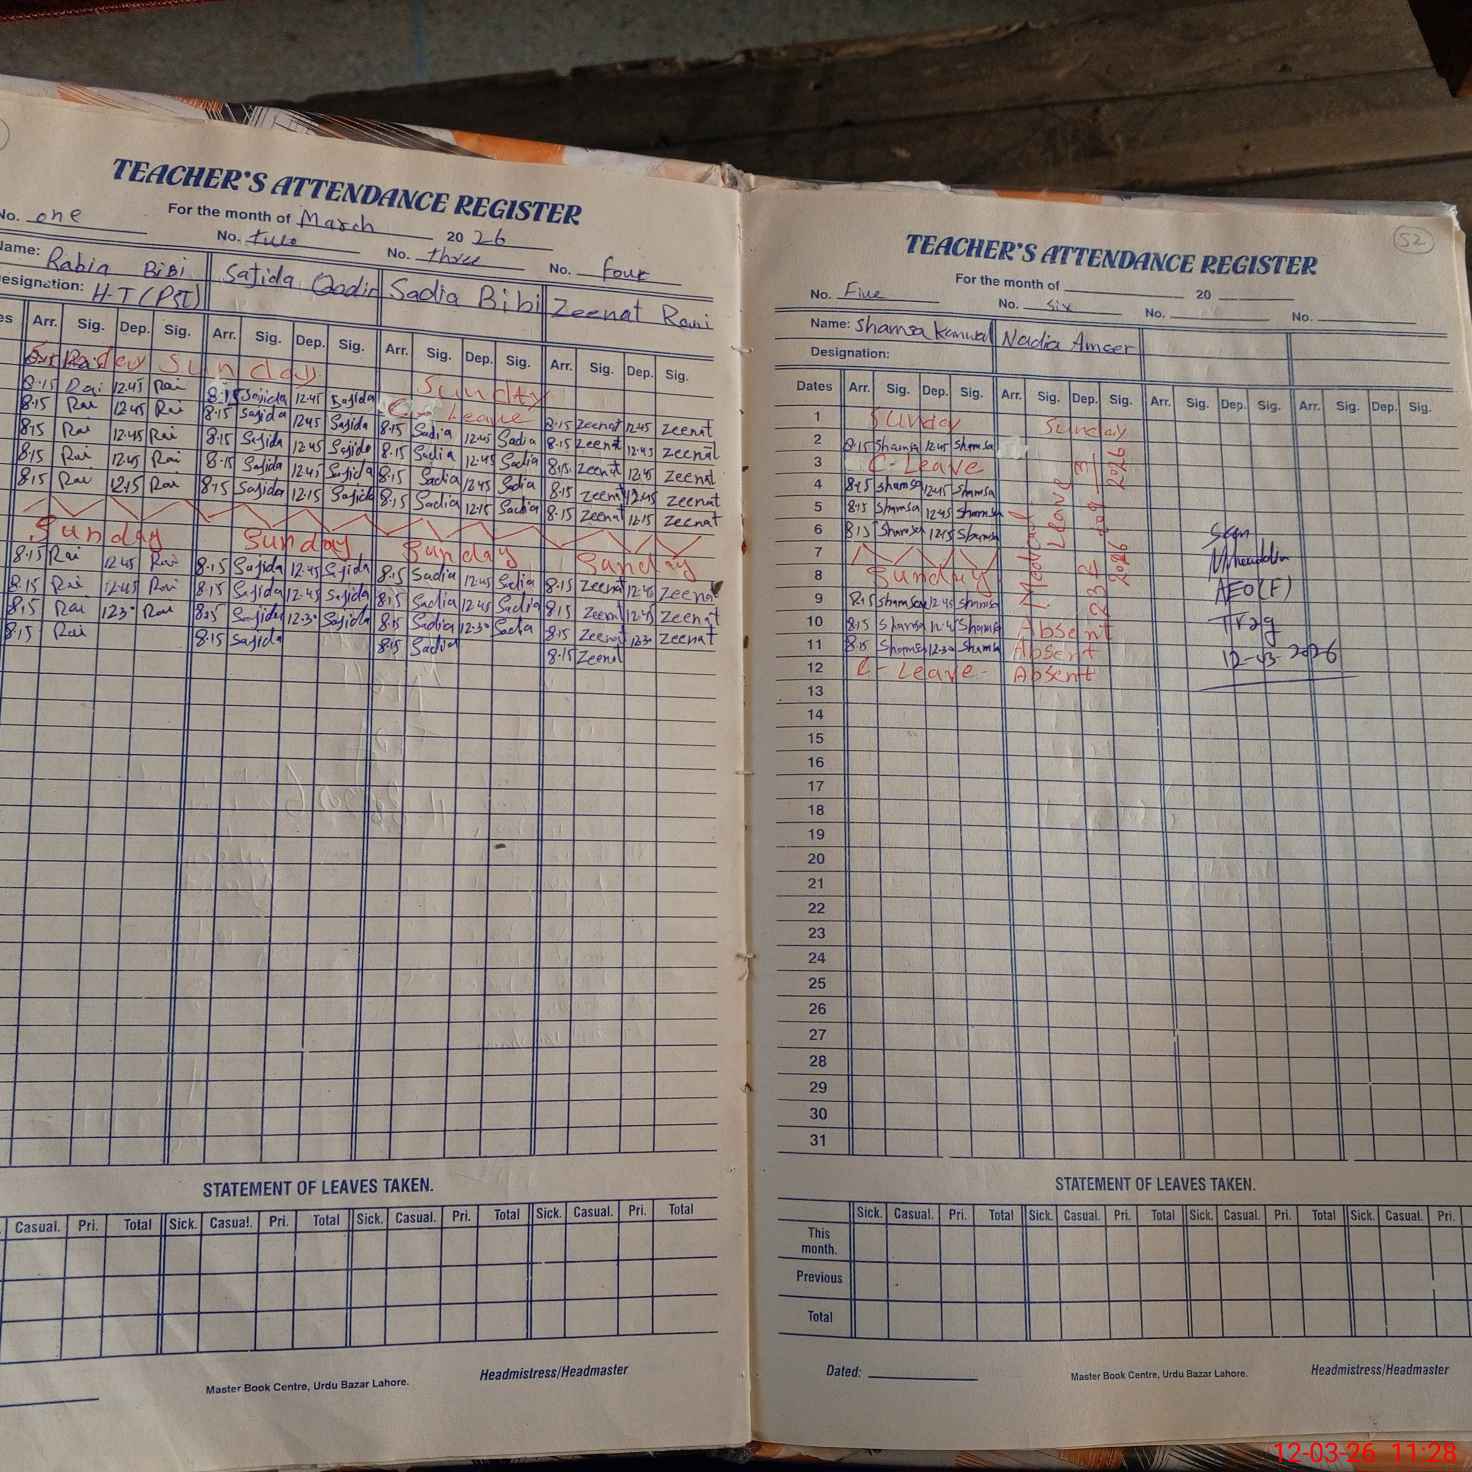 TEACHER'S ATTENDANCE REGISTER
For the month of March 2026
No. one No. two No. three No. four
Name: Rabia Bibi Sajida Qadir Sadia Bibi Zeenat Rani
Designation: H-T (PST)
Arr. Sig. Dep. Sig. Arr. Sig. Dep. Sig. Arr. Sig. Dep. Sig. Arr. Sig. Dep. Sig.
Sunday Sunday
8:15 Rai 12:45 Rai 8:15 Sajida 12:45 Sajida C- Leave 8:15 Zeenat 12:45 Zeenat
8:15 Rai 12:45 Rai 8:15 Sajida 12:45 Sajida 8:15 Sadia 12:45 Sadia 8:15 Zeenat 12:45 Zeenat
8:15 Rai 12:45 Rai 8:15 Sajida 12:45 Sajida 8:15 Sadia 12:45 Sadia 8:15 Zeenat 12:45 Zeenat
8:15 Rai 12:45 Rai 8:15 Sajida 12:45 Sajida 8:15 Sadia 12:45 Sadia 8:15 Zeenat 12:45 Zeenat
8:15 Rai 12:15 Rai 8:15 Sajida 12:15 Sajida 8:15 Sadia 12:15 Sadia 8:15 Zeenat 12:15 Zeenat
Sunday Sunday Sunday Sunday
8:15 Rai 12:45 Rai 8:15 Sajida 12:45 Sajida 8:15 Sadia 12:45 Sadia 8:15 Zeenat 12:45 Zeenat
8:15 Rai 12:45 Rai 8:15 Sajida 12:45 Sajida 8:15 Sadia 12:45 Sadia 8:15 Zeenat 12:45 Zeenat
8:15 Rai 12:30 Rai 8:15 Sajida 12:30 Sajida 8:15 Sadia 12:30 Sadia 8:15 Zeenat 12:30 Zeenat
8:15 Rai 8:15 Sajida 8:15 Sadia 8:15 Zeenat
STATEMENT OF LEAVES TAKEN.
Casual. Pri. Total Sick. Casual. Pri. Total Sick. Casual. Pri. Total Sick. Casual. Pri. Total
Headmistress/Headmaster
Master Book Centre, Urdu Bazar Lahore.
52
TEACHER'S ATTENDANCE REGISTER
For the month of 20
No. Five No. six No. No.
Name: Shamsa Kanwal Nadia Ameer
Designation:
Dates Arr. Sig. Dep. Sig. Arr. Sig. Dep. Sig. Arr. Sig. Dep. Sig. Arr. Sig. Dep. Sig.
1 Sunday Sunday
2 8:15 Shamsa 12:45 Shamsa
3 C- Leave
4 8:15 Shamsa 12:45 Shamsa
5 8:15 Shamsa 12:45 Shamsa
6 8:15 Shamsa 12:15 Shamsa
7
8 Sunday
9 8:15 Shamsa 12:45 Shamsa
10 8:15 Shamsa 12:45 Shamsa Absent
11 8:15 Shamsa 12:30 Shamsa Absent
12 C- Leave- Absent
Medical Leave
2026
2026
Seen
AEO(F)
Trag
12-03-2026
13
14
15
16
17
18
19
20
21
22
23
24
25
26
27
28
29
30
31
STATEMENT OF LEAVES TAKEN.
Sick. Casual. Pri. Total Sick. Casual. Pri. Total Sick. Casual. Pri. Total Sick. Casual. Pri.
This month.
Previous
Total
Dated: Headmistress/Headmaster
Master Book Centre, Urdu Bazar Lahore.
12-03-26 11:28